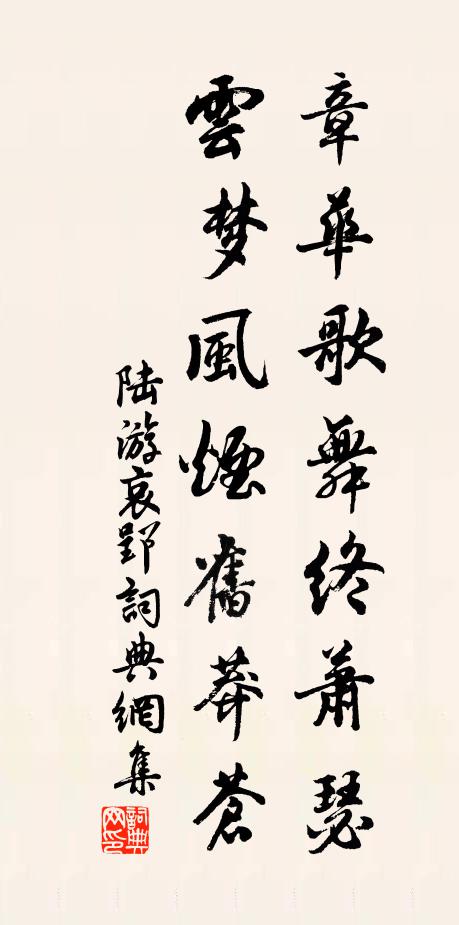 章華歌舞終蕭瑟
雲梦風煙舊莽蒼
陆游哀郢詞典網集
詞典網印